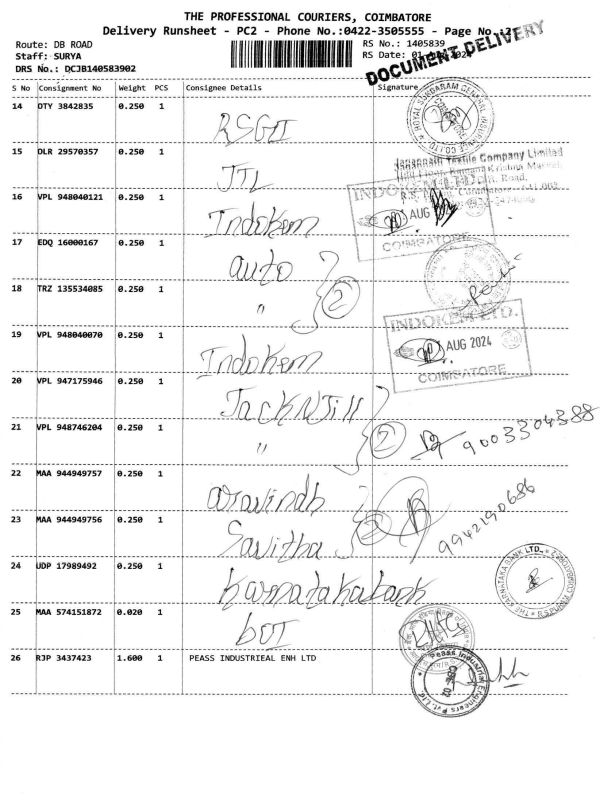 THE PROFESSIONAL COURIERS, COIMBATORE
Delivery Runsheet - PC2 - Phone No.:0422-3505555 - Page No.:2
Route: DB ROAD
RS No.: 1405839
Staff: SURYA
RS Date: 01 2024
DRS No.: DCJB140583902
DOCUMENT DELIVERY
S No Consignment No Weight PCS Consignee Details Signature
14 OTY 3842835 0.250 1 RSGI
ROYAL SUNDARAM GENERAL INSURANCE CO. LTD. COIMBATORE
15 DLR 29570357 0.250 1 JTL
Jagannath Textile Company Limited
16 VPL 948040121 0.250 1 Indokem
INDOKEM LTD.
AUG
COIMBATORE
17 EDQ 16000167 0.250 1 auto
18 TRZ 135534085 0.250 1 " 2
19 VPL 948040070 0.250 1 Indokem
INDOKEM LTD.
AUG 2024
COIMBATORE
20 VPL 947175946 0.250 1 Jack N Jill
21 VPL 948746204 0.250 1 " 2 9003304388
22 MAA 944949757 0.250 1 aravindh
23 MAA 944949756 0.250 1 Savitha 2 9942190686
24 UDP 17989492 0.250 1 Karnataka bank
THE KARNATAKA BANK LTD.
25 MAA 574151872 0.020 1 BOI
26 RJP 3437423 1.600 1 PEASS INDUSTRIEAL ENH LTD
Peass Industrial Engineers Pvt. Ltd.
CBE-02